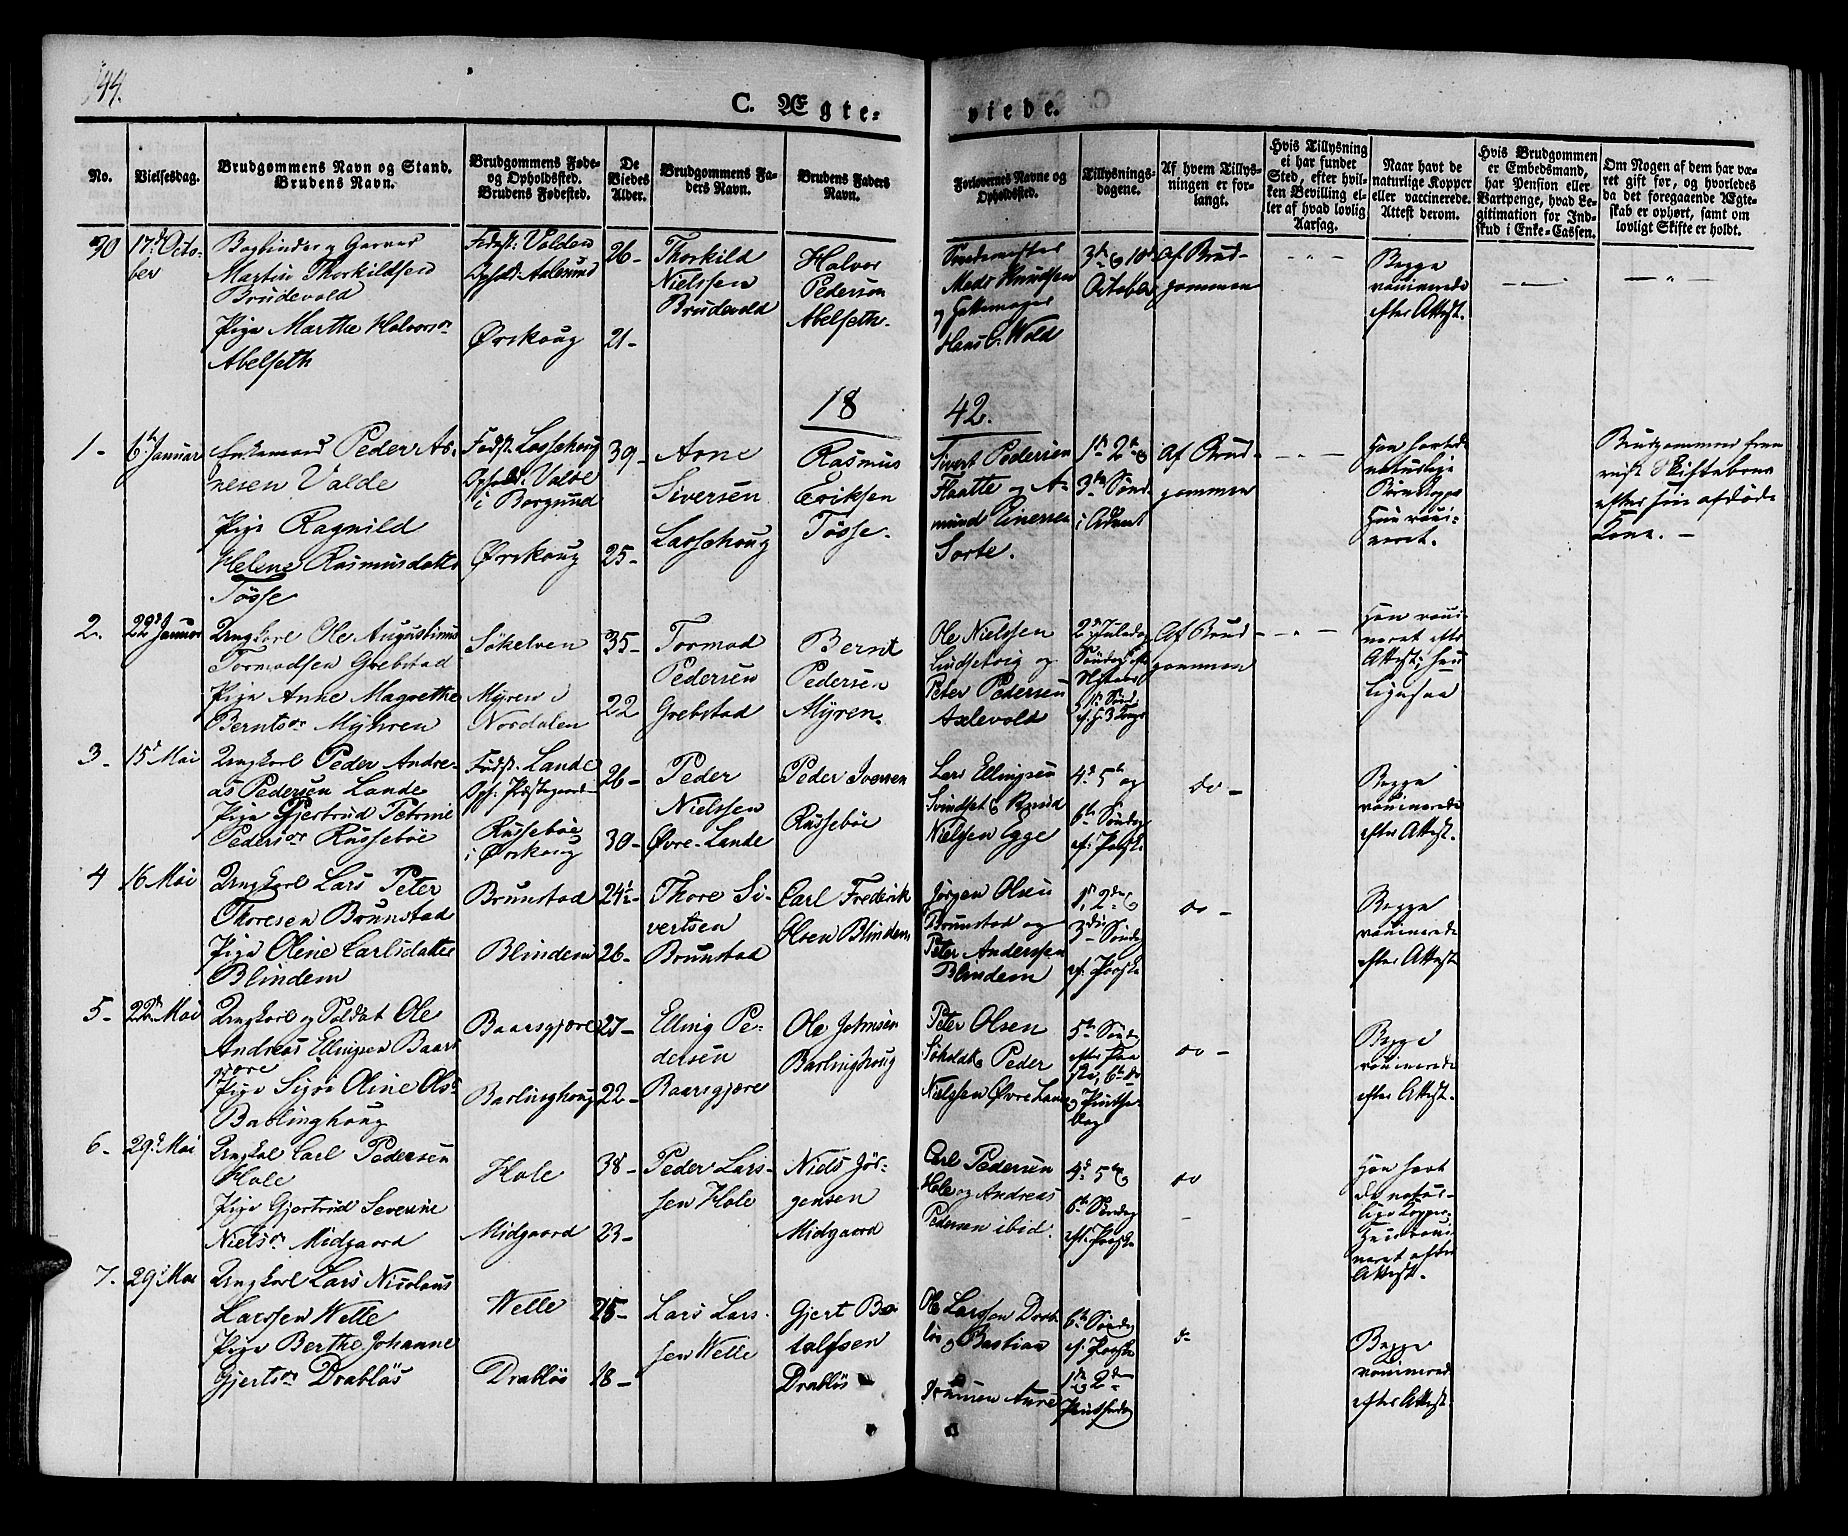 144.
C. Ægte- viede.
No.
Vielsesdag.
Brudgommens Navn og Stand.
Brudens Navn.
Brudgommens Føde-
og Opholdssted.
Brudens Fødested.
De
Viedes
Alder.
Brudgommens Fa-
ders Navn.
Brudens Faders
Navn.
Forlovernes Navne og
Opholdssted.
Tillysnings-
dagene.
Af hvem Tillys-
ningen er for-
langt.
Hvis Tillysning
ei har fundet
Sted, efter hvil-
ken Bevilling el-
ler af hvad lovlig
Aarsag.
Naar havt de
naturlige Kopper
eller vaccinerede.
Attest derom.
Hvis Brudgommen
er Embedsmand,
har Pension eller
Vartpenge, hvad Le-
gitimation for Ind-
skud i Enke-Cassen.
Om Nogen af dem har væ-
ret gift før, og hvorledes
da det foregaaende Ægte-
skab er ophørt, samt om
lovligt Skifte er holdt.
30
17d Octo-
ber
Bogbinder og Garver
Martin Thorkildsen
Brudevold
Pige Marthe Halvorsdr
Abelseth
Fødest: Valden
Ophold: Aalesund
Ørskoug
26-
21-
Thorkild
Nielssen
Brudevold
Halvor
Pedersen
Abelseth.
Mads Knudsen
Hans C. Wold
3die & 10de
October
Af Brud-
gommen
Begge
vaccinerede
efter Attest.
18 42.
1-
6te Januar
Enkemand Peder Ar-
nesen Valde
Pige Ragnild
Helene Rasmusdatter
Tösse
Födst: Lassehoug
Ophold: Valde
i Borgund
Ørskoug
39-
25-
Arne
Siversen
Lassehoug
Rasmus
Eriksen
Tösse.
Sivert Pedersen
Flaatte og A-
mund Einersen
Sorte.
1ste 2den &
3die Sönd.
i Advent
Af Brud-
gommen
Han havt de
naturlige
Börnekopper
Hun vacci-
neret.
Brudgommen frem
vist Skiftebrev
efter sin afdöde
Kone. -
2.
22de Januar
Ungkarl Ole Augustinus
Tormodsen Grebstad
Pige Anne Magrethe
Berntsdr Myhren
Sökelven
Myren i
Nordalen
35-
22
Tormod
Pedersen
Grebstad
Bernt
Pedersen
Myren.
Ole Nielssen
Lindsetvig og
Peter Pedersen
Axlevold
2den Juledag
Af Brud-
gommen
Han vacci-
neret efter
Attest; Hun
ligesaa
3-
15de Mai
Ungkarl Peder Andre-
as Pedersen Lande
Pige Gjertrud Petrine
Pedersdr Russeböe
Födst: Lande
Oph: Præstegaarden
Russeböe
i Ørskoug
26-
30-
Peder
Nielssen
Øvre-Lande
Peder Iversen
Russeböe
Lars Ellingsen
Svindset & Knud
Nielsen Egge
4de 5te og
6te Söndag
ef: Paaske
do -
Begge
vaccinerede
efter Attest.
4
16 Mai
Ungkarl Lars Peter
Thoresen Brunstad
Pige Oline Carlsdatter
Blindem
Brunstad
Blindem
24½-
26-
Thore Si-
vertsen
Brunstad
Carl Frederik
Olsen Blindem
Jörgen Olsen
Brunstad og
Peter Anderssen
Blindem
1ste 2den &
3die Söndag
ef: Paaske
do -
Begge
vaccinerede
efter Attest
5-
22de Mai
Ungkarl og Soldat Ole
Andreas Ellingsen Baars
gjære
Pige Sigri Oline Olsdr
Barlinghoug
Baarsgjære
Barlinghoug
27-
22-
Elling Pe-
dersen
Baarsgjære
Ole Johnsen
Barlinghoug
Peter Olsen
Søholdt & Peder
Nielssen Övre Lande
5te Söndag
efter Paa
ske, 6te do
& Pintse-
dag
do -
Begge
vaccinerede
efter Attest.
6-
29de Mai
Ungkarl Carl Pedersen
Hole
Pige Gjertrud Severine
Nielsdr Midgaard
Hole
Midgaard
38-
23-
Peder Lars-
sen Hole
Niels Jör-
gensen
Midgaard
Carl Pedersen
Hole og Andreas
Pedersen ibid.
4de 5te &
6te Söndag
eft: Paaske
do
-
Han havt
de natur-
lige Kopper.
Hun vacci-
neret efter
Attest.
7.
29de Mai
Ungkarl Lars Nicolaus
Larssen Welle
Pige Berthe Johanne
Gjertsdr Drablös
Welle
Drablös
25-
18-
Lars Lars-
sen Welle
Gjert Ba-
talfsen
Drablös -
Ole Larssen Drab-
lös og Bastian
Aure
6te Söndag
ef: Paaske
1ste & 2den
Pintsedag
do
Begge
vaccinerede
efter Attest.